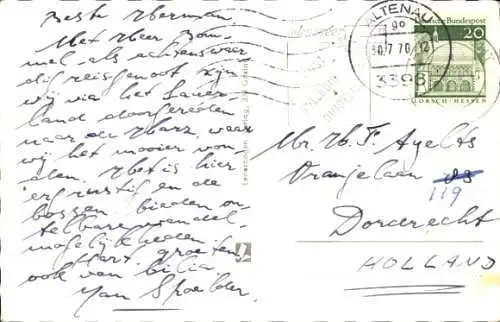 Beste Oberman,
Met Meer Bom-
mel als achtenswaar
dig reisgenoot zijn
wij via het Sauer-
land doorgereden
naar de Harz, waar
wij het mooier von-
den. Het is hier
erg rustig en de
bossen bieden on
telbare wandel-
mogelijkheden.
Hart. groeten,
ook van
Jan Spoelder.
ALTENAU
30.7.70.12
3396
Deutsche Bundespost
20
LORSCH/HESSEN
Mr. W.F. Agelts
Oranjelaan
119
Dordrecht
HOLLAND